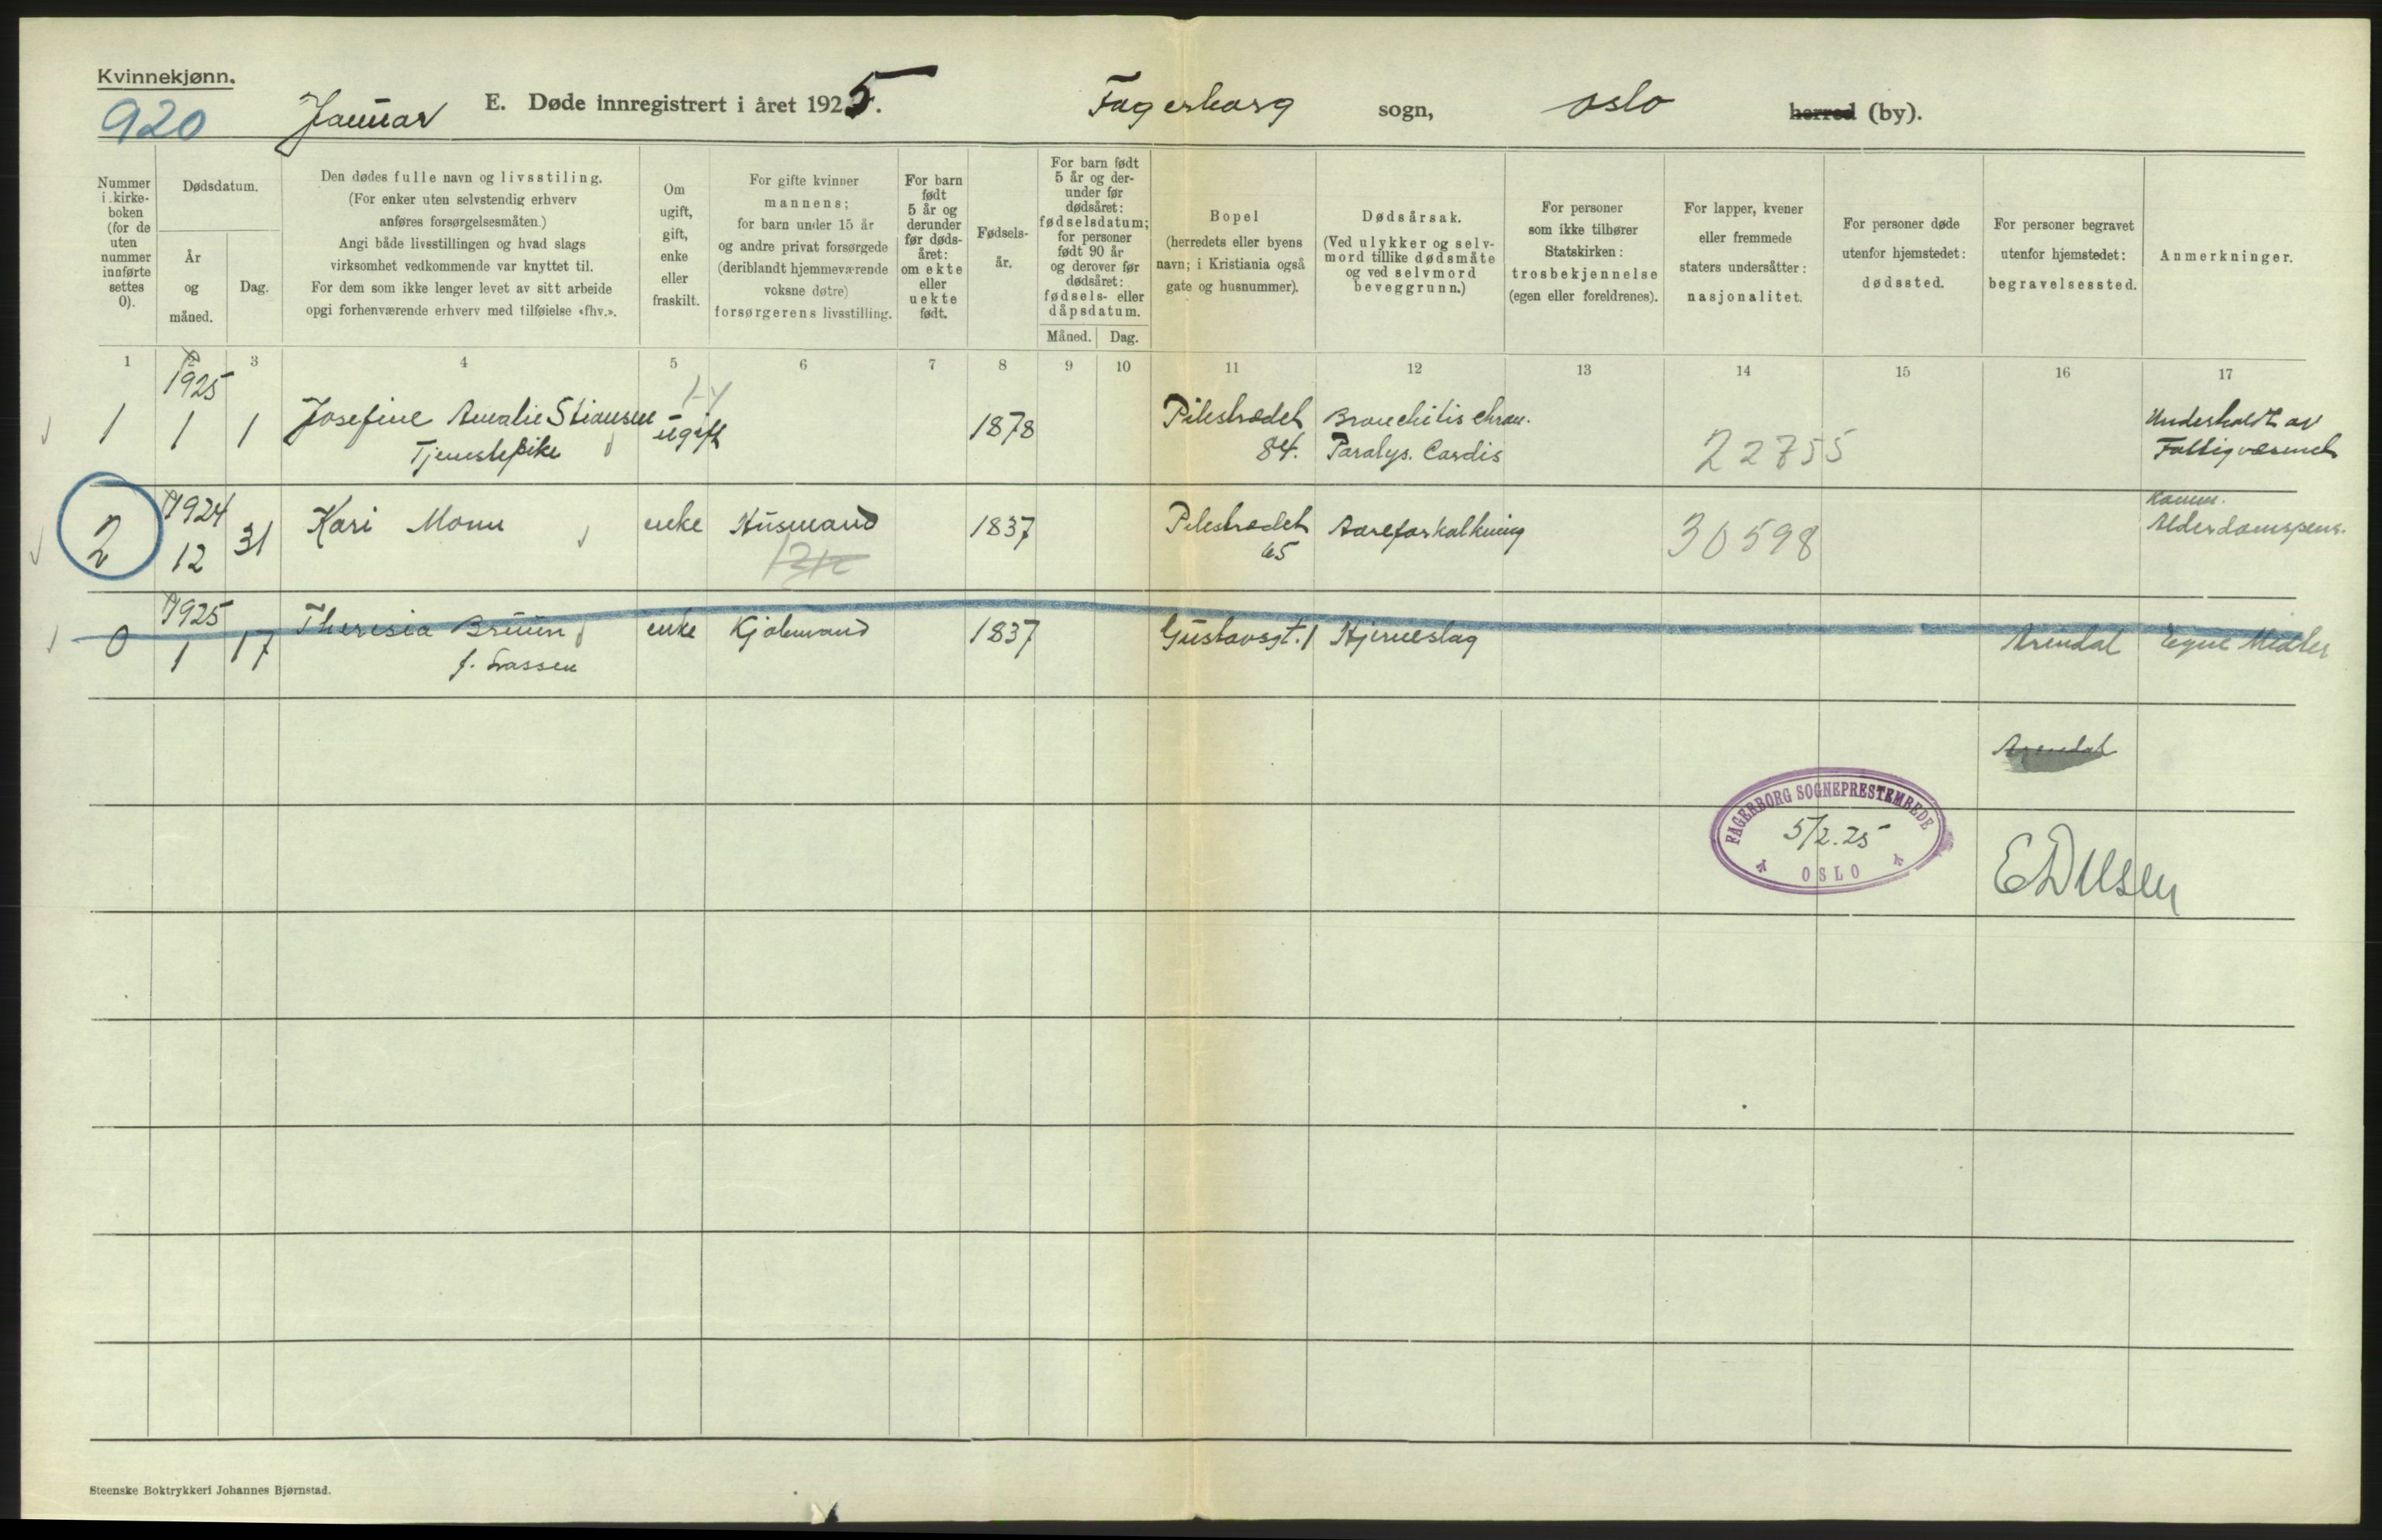 Kvinnekjønn.
920
Januar E. Døde innregistrert i året 1925. Fagerborg sogn, Oslo herred (by).
Nummer i kirkeboken (for de uten nummer innførte settes 0).
Dødsdatum.
År og måned.
Dag.
Den dødes fulle navn og livsstiling.
(For enker uten selvstendig erhverv
anføres forsørgelsesmåten.)
Angi både livsstillingen og hvad slags
virksomhet vedkommende var knyttet til.
For dem som ikke lenger levet av sitt arbeide
opgi forhenværende erhverv med tilføielse «fhv.».
Om
ugift,
gift,
enke
eller
fraskilt.
For gifte kvinner
mannens;
for barn under 15 år
og andre privat forsørgede
(deriblandt hjemmeværende
voksne døtre)
forsørgerens livsstilling.
For barn
født
5 år og
derunder
før døds-
året:
om ekte
eller
uekte
født.
Fødsels-
år.
For barn født
5 år og der-
under før
dødsåret:
fødselsdatum;
for personer
født 90 år
og derover før
dødsåret:
fødsels- eller
dåpsdatum.
Måned. Dag.
Bopel
(herredets eller byens
navn; i Kristiania også
gate og husnummer).
Dødsårsak.
(Ved ulykker og selv-
mord tillike dødsmåte
og ved selvmord
beveggrunn.)
For personer
som ikke tilhører
Statskirken:
trosbekjennelse
(egen eller foreldrenes).
For lapper, kvener
eller fremmede
staters undersåtter:
nasjonalitet.
For personer døde
utenfor hjemstedet:
dødssted.
For personer begravet
utenfor hjemstedet:
begravelsessted.
Anmerkninger.
1 2 3 4 5 6 7 8 9 10 11 12 13 14 15 16 17
1925
1 1 1 Josefine Amalie Stiansen ugift 1878 Pilestrædet Bronchitis chron. Underholdt av
Tjenestepike 84. Paralys. Cordis 22755 Fattigvæsenet
1924 Komm.
2 12 31 Kari Monn enke Husmand 1837 Pilestrædet Aareforkalkning 30598 Alderdomspens.
65
1925
0 1 17 Theresia Bruun enke Kjøbmand 1837 Gustavsgt. 1 Hjerneslag Arendal Egne Midler
f. Lassen
Arendal
FAGERBORG SOGNEPRESTEMBEDE
5/2.25
OSLO
Steenske Boktrykkeri Johannes Bjørnstad.